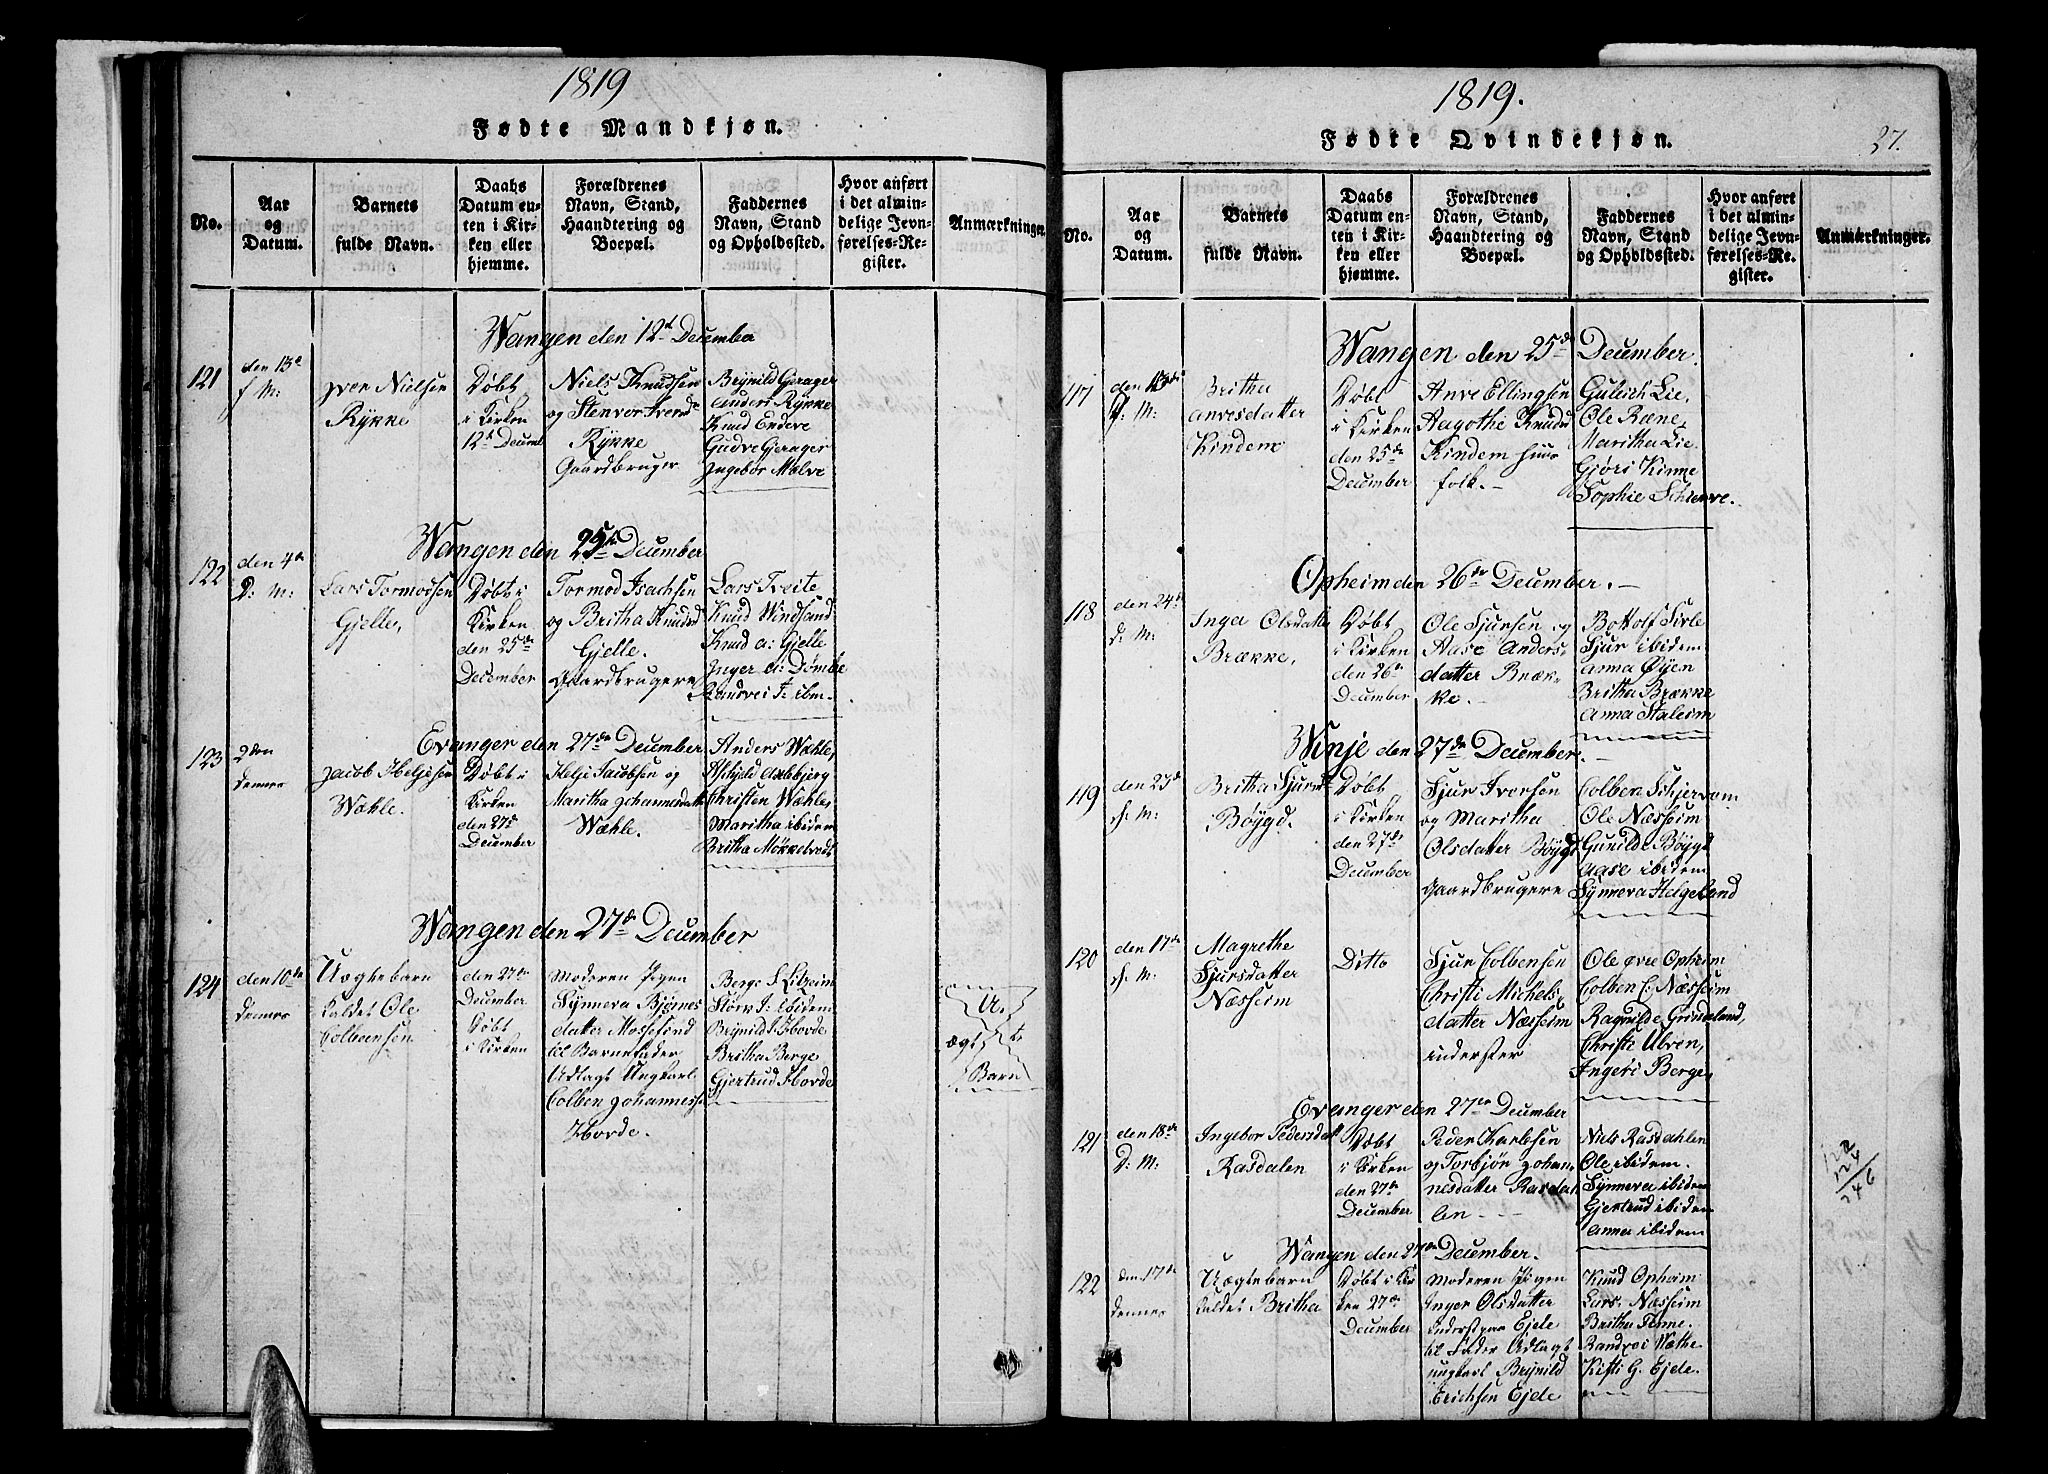 1819
Fødte Mandkjøn.
No.
Aar
og
Datum.
Barnets
fulde Navn.
Daabs
Datum en-
ten i Kir-
ken eller
hjemme.
Forældrenes
Navn, Stand,
Haandtering og
Boepæl.
Faddernes
Navn, Stand
og Opholdssted.
Hvor anført
i det almin-
delige Jevn-
førelses-Re-
gister.
Anmærkninger.
Wangen den 12te December
121
den 13de
f: M:
Iver Nielsen
Rykke
Døbt
i Kirken
12te Decemb
Niels Knudsen
og Stenvor Iversd
Rykke
Gaardbruger
Brynild Gjerager
Anders Rykke
Knud Endeve
Gudve Gjerager
Ingebor Mølve
Wangen den 25de December
122
den 4de
D: M:
Lars Tormodsen
Gjelle,
Døbt i
Kirken
den 25de
December
Tormod Isachsen
og Britha Knudsd
Gjelle.
Gaardbrugere
Lars Tveite
Knud Windsand
Knud a: Gjelle
Inger a: Dømbe
Randvei T: ibm.
Evanger den 27de December
123
2den
dennes
Jacob Helgesen
Wæhle.
Døbt i
Kirken
den 27de
December
Helge Jacobsen og
Maritha Johannesdatt
Wæhle.
Anders Wæhle,
Christen Wæhle
Maritha ibidem
Britha Mokkelvedt
Wangen den 27de December
124
den 10de
dennes
Uægtebarn
kaldet Ole
Colbensen
den 27de
December
Døbt
i Kirken
Moderen Pigen
Synneva Bjørnes
datter Mossefind
til Barnefader
Udlagt Ungkarl
Colben Johannessen
Horde.
Berge S. Lilheim
Størk I: ibidem
Brynild I: Horde
Britha Berge
Gjertrud Horde
U.
ægte
Barn
1819.
Fødte Qvindekjøn.
27.
No.
Aar
og
Datum.
Barnets
fulde Navn.
Daabs
Datum en-
ten i Kir-
ken eller
hjemme.
Forældrenes
Navn, Stand,
Haandtering og
Boepæl.
Faddernes
Navn, Stand
og Opholdssted.
Hvor anført
i det almin-
delige Jevn-
førelses-Re-
gister.
Anmærkninger.
Wangen den 25de December.
117
den 13de
D: M:
Britha
Anvesdatter
Kindem
Døbt
i Kirken
den 25de
December
Anve Ellingsen
Aagothe Knudsd
Kindem huus
folk.
Guleich Lie,
Ole Rane,
Maritha Lie
Giøri Kinne
Sophie Schierve.
Opheim den 26de December.
118
den 24de
d: M:
Inga Olsdatter
Brække,
Døbt
i Kirken
den 26de
December
Ole Sjursen og
Aase Anders
datter Bræk-
ke.
Bottolf Sivle
Sjur ibidem
Anna Øyen
Britha Brække
Anna Staleim
Winje den 27de December.
119
den 23de
d. M:
Britha Sjursd
Bøygd.
Døbt
i Kirken
den 27de
December
Sjur Iversen
og Maritha
Olsdatter Bøygd
Gaardbrugere
Colben Schjervem
Ole Næsheim
Gunilde Bøygd
Aase ibidem
Synneva Helgeland
120
den 17de
d. M:
Magrethe
Sjursdatter
Næsheim
Ditto
Sjur Colbensen
Christi Michels
datter Næsheim
inderster
Ole øvre Opheim
Colben C Næsheim
Ragnilde Grindeland,
Christi Ulven,
Ingeri Berge
Evanger den 27de December
121
den 18de
D: M:
Ingebor Pedersdatt
Rasdalen
Døbt
i Kirken
den 27de
December
Peder Karlsen
og Torbjør Johan-
nesdatter Rasda-
len
Niels Rasdahlen
Ole ibidem.
Synneva ibidem
Gjertrud ibidem
Anna ibidem
122
124
246
Wangen den 27de December.
122
den 17de
dennes
Uægtebarn
kaldet Britha
Døbt i Kir
ken 27de
December
Moderen Pigen
Inger Olsdatter
Inderstpige Ejele
til Fader Udlagt
ungkarl Brynild
Erichsen Ejele
Knud Opheim
Lars Næsheim
Britha Finne.
Randvei Wæthe
Kisti G. Ejele.